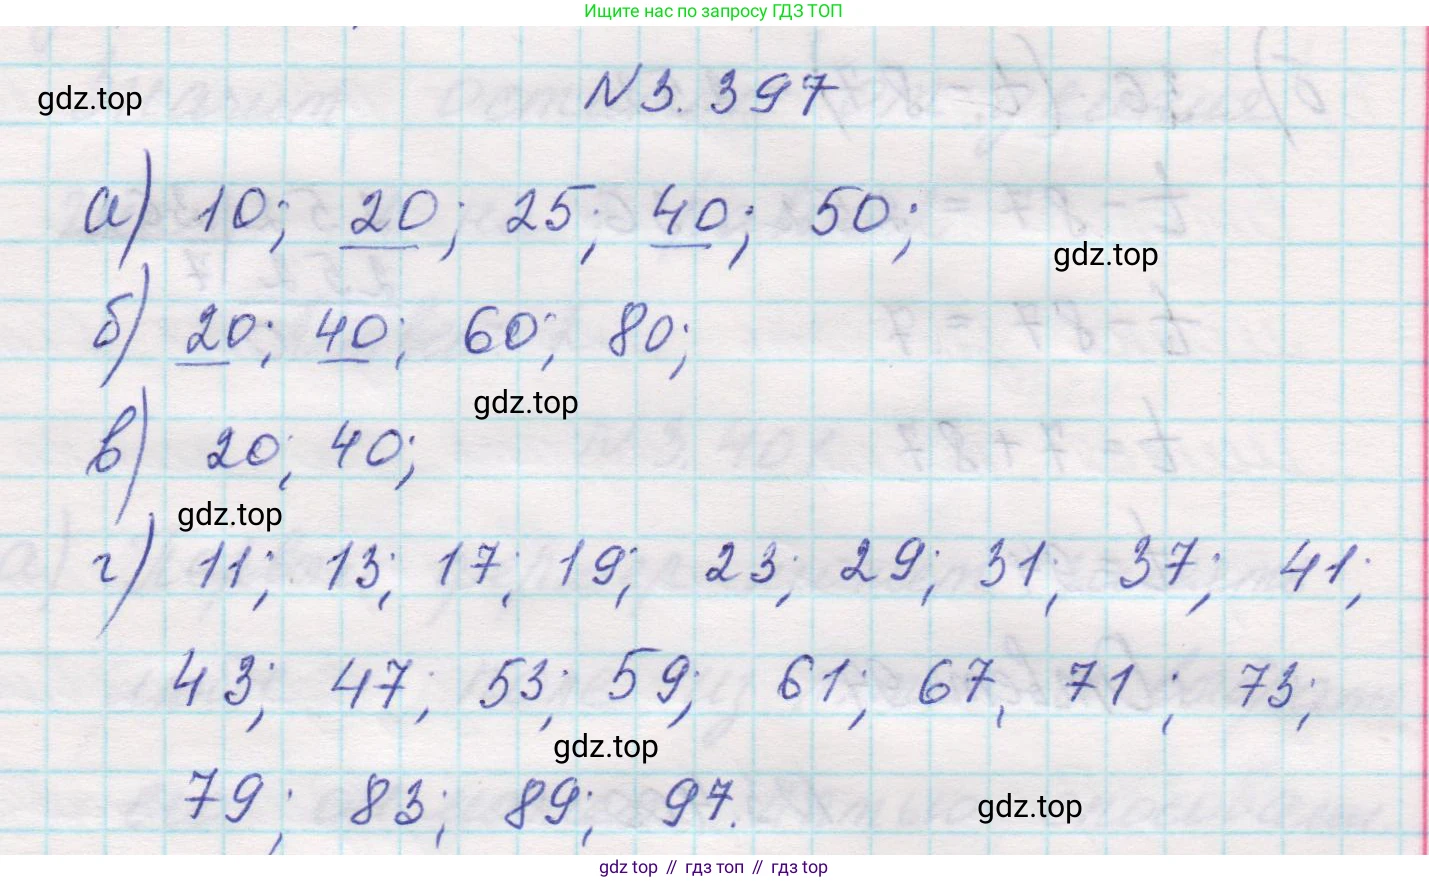 Ищите нас по запросу ГДЗ ТОП
N 3. 397
gdz.top
а) 10; 20; 25; 40; 50;
gdz.top
б) 20; 40; 60; 80;
gdz.top
в) 20; 40;
gdz.top
г) 11; 13; 17; 19; 23; 29; 31; 37; 41;
43; 47; 53; 59; 61; 67, 71; 73;
gdz.top
79; 83; 89; 97.
gdz.top
gdz top // гдз топ // gdz top